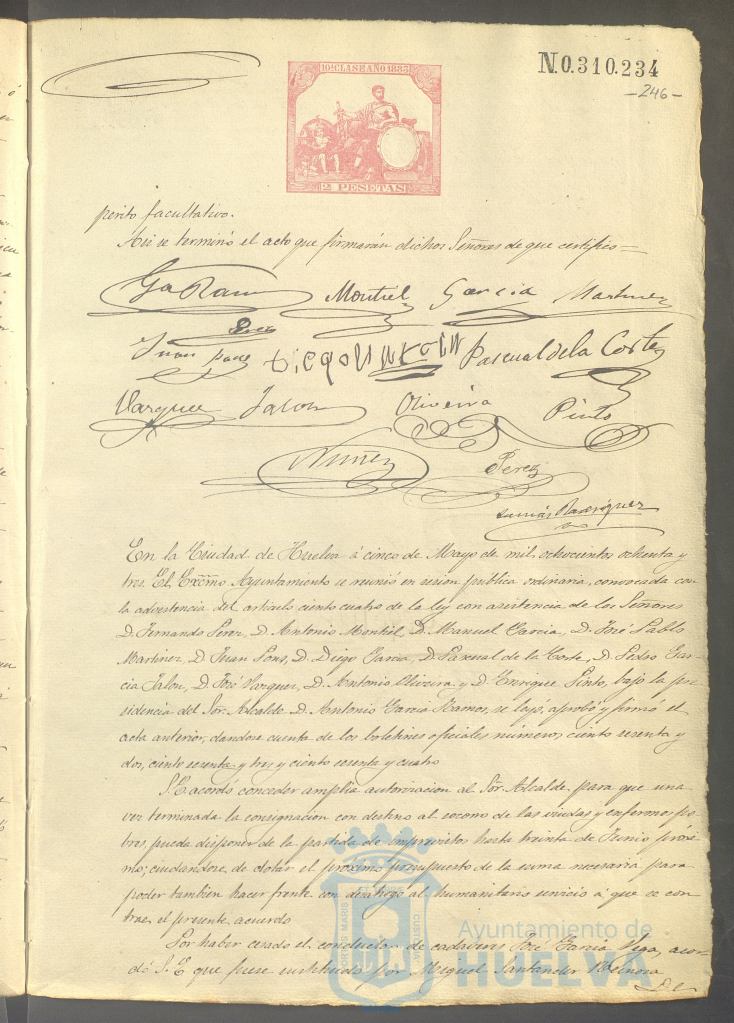 10ª CLASE AÑO 1883
N.0.310.234
-246-
2 PESETAS
perito facultativo.
Asi se terminó el acto que firmarán dichos Señores de que certifico=
Ga Ramos Montiel Garcia Martinez
Perez
Juan Pons Diego Garcia Pascual de la Corte
Vazquez Jalon Oliveira Pinto
Nuñez Perez
Rodriguez
En la Ciudad de Huelva á cinco de Mayo de mil ochocientos ochenta y
tres. El Excmo Ayuntamiento se reunió en sesion pública ordinaria, convocada con
la advertencia del artículo ciento cuatro de la ley con asistencia de los Señores
D. Fernando Perez, D. Antonio Montiel, D. Manuel Garcia, D. José Pablo
Martinez, D. Juan Pons, D. Diego Garcia, D. Pascual de la Corte, D. Pedro Gar-
cia Jalon, D. José Vazquez, D. Antonio Oliveira y D. Enrique Pinto, bajo la pre-
sidencia del Sor. Alcalde D. Antonio Garcia Ramos, se leyó, aprobó y firmó el
acta anterior, dandose cuenta de los boletines oficiales números ciento sesenta y
dos, ciento sesenta y tres y ciento sesenta y cuatro
S. E. acordó conceder amplia autorizacion al Sor. Alcalde para que una
vez terminada la consignacion con destino al socorro de las viudas y enfermos po-
bres, pueda disponer de la partida de imprevistos hasta treinta de Junio próxi-
mo; cuidandose de dotar el próximo presupuesto de la suma necesaria para
poder tambien hacer frente con desahogo al humanitario servicio á que se con-
trae el presente acuerdo
Por haber cesado el conductor de cadáveres José Garcia Vega, acor-
dó S. E. que fuese sustituido por Miguel Santander Reinosa
De
PORTUS MARIS CUSTODIA
Ayuntamiento de
HUELVA